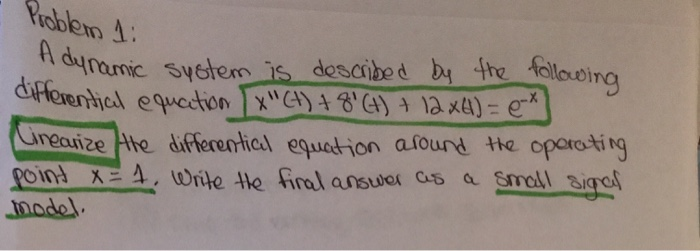 Problem 1:
A dynamic system is described by the following
differential equation x''(t) + 8'(t) + 12x(t) = e^-x
Linearize the differential equation around the operating
point x = 1. Write the final answer as a small signal
model.